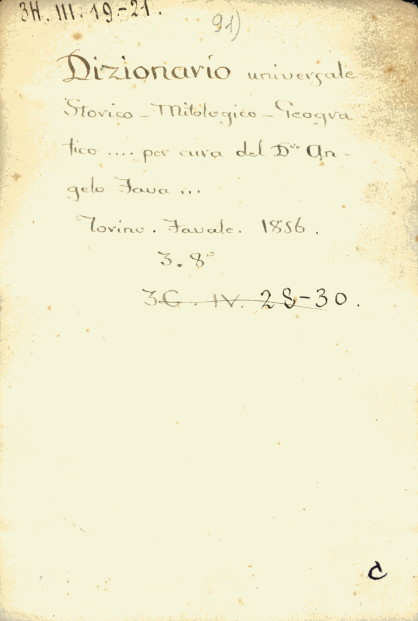 3H. III. 19-21.
91)
Dizionario universale
Storico - Mitologico - Geogra
fico .... per cura del D.re An-
gelo Fava ...
Torino. Favale. 1856.
3. 8°
3G. IV. 28-30.
C